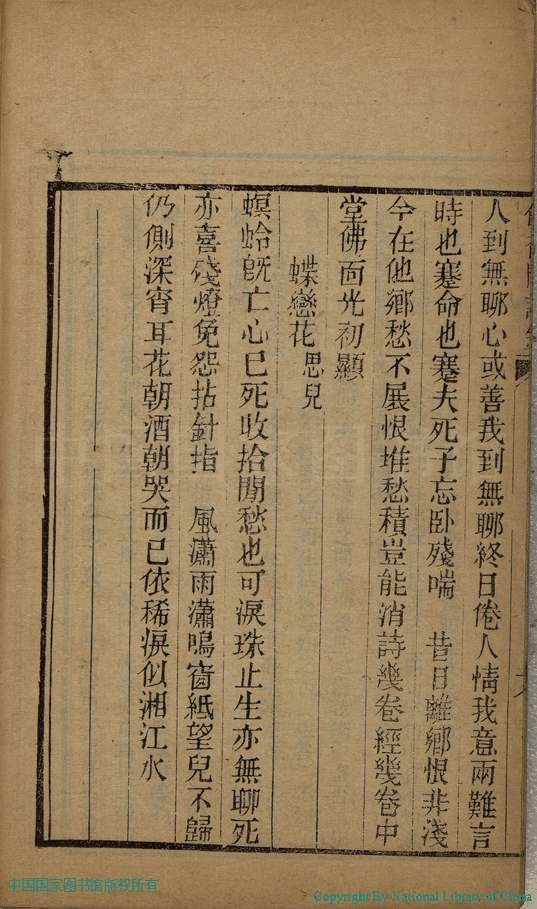 人到無聊心或善我到無聊終日倦人情我意兩難言
時也蹇命也蹇夫死子忘卧殘喘　昔日離鄉恨非淺
今在他鄉愁不展恨堆愁積豈能消詩幾卷經幾卷中
堂佛面光初顯
蝶戀花 思兒
螟蛉旣亡心已死收拾閒愁也可淚珠止生亦無聊死
亦喜殘燈免怨拈針指　風瀟雨瀟鳴窗紙望兒不歸
仍側深宵耳花朝酒朝哭而已依稀淚似湘江水
中国国家图书馆版权所有
Copyright By National Library of China